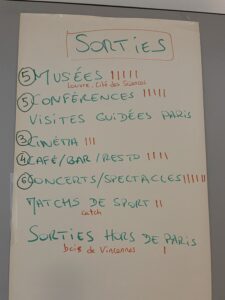 SORTIES
⑤ MUSÉES |||||
Louvre, Cité des Sciences
⑤ CONFÉRENCES |||||
VISITES GUIDÉES PARIS
③ CINÉMA |||
④ CAFÉ/BAR/RESTO ||||
⑥ CONCERTS/SPECTACLES ||||||
MATCHS DE SPORT ||
catch
SORTIES HORS DE PARIS
bois de Vincennes |